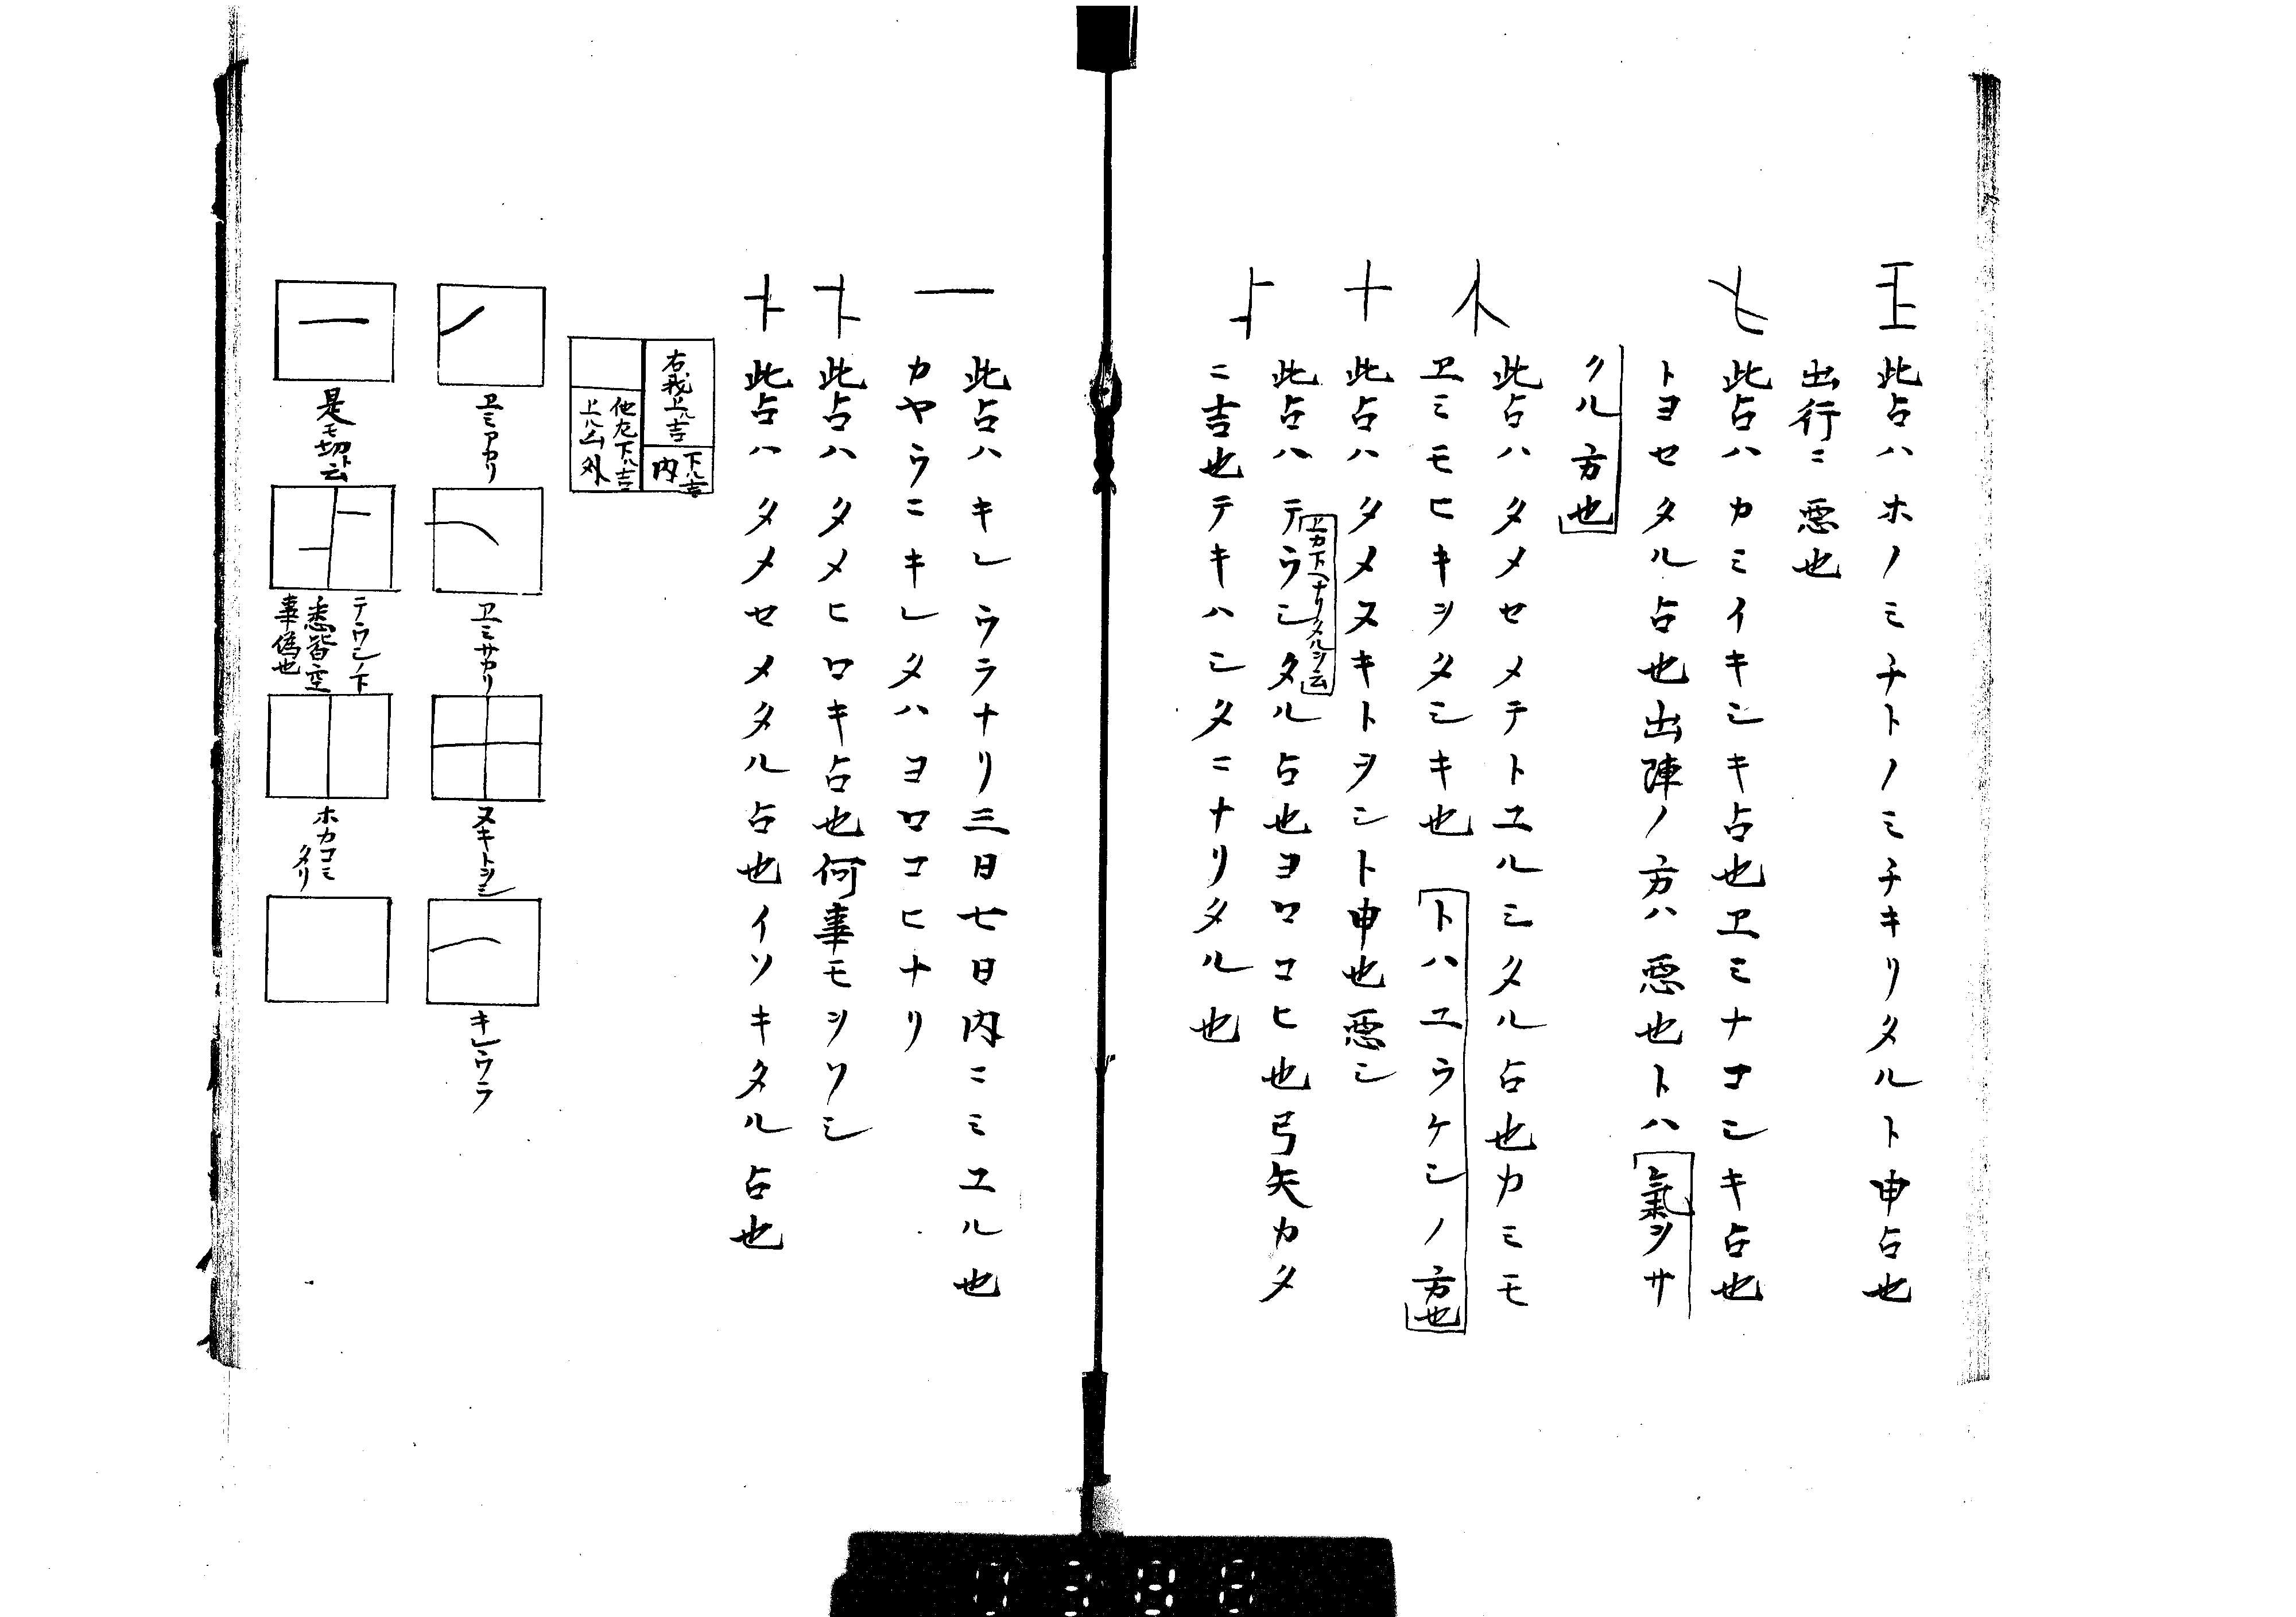 此占ハホノミチトノミチキリタルト申占也
出行ニ悪也
此占ハカミイキシキ占也ヱミナコシキ占也
トヨセタル占也出陣ノ方ハ悪也トハ氣ヲサ
クル方也
此占ハタメセメテトユルシタル占也カミモ
ヱミモヒキヲタシキ也 トハユラケシノ方也
此占ハタメヌキトヲシト申也悪シ
上カ下ヘナリタルヲ云
此占ハテラシタル占也ヨロコヒ也弓矢カタ
ニ吉也テキハシタニナリタル也
一
此占ハキレウラナリ三日七日内ニミユル也
カヤウニキレタハヨロコヒナリ
此占ハタメヒロキ占也何事モヲソシ
此占ハタメセメタル占也イソキタル占也
右我上ハ吉
下ハ吉
内
他左下ハ吉
上ハ凶 外
ヱミアカリ
ヱミサカリ
ヌキトヲシ
キレウラ
是モ切ト云
テウシノ下
悉皆空
事偽也
ホカコミ
タリ